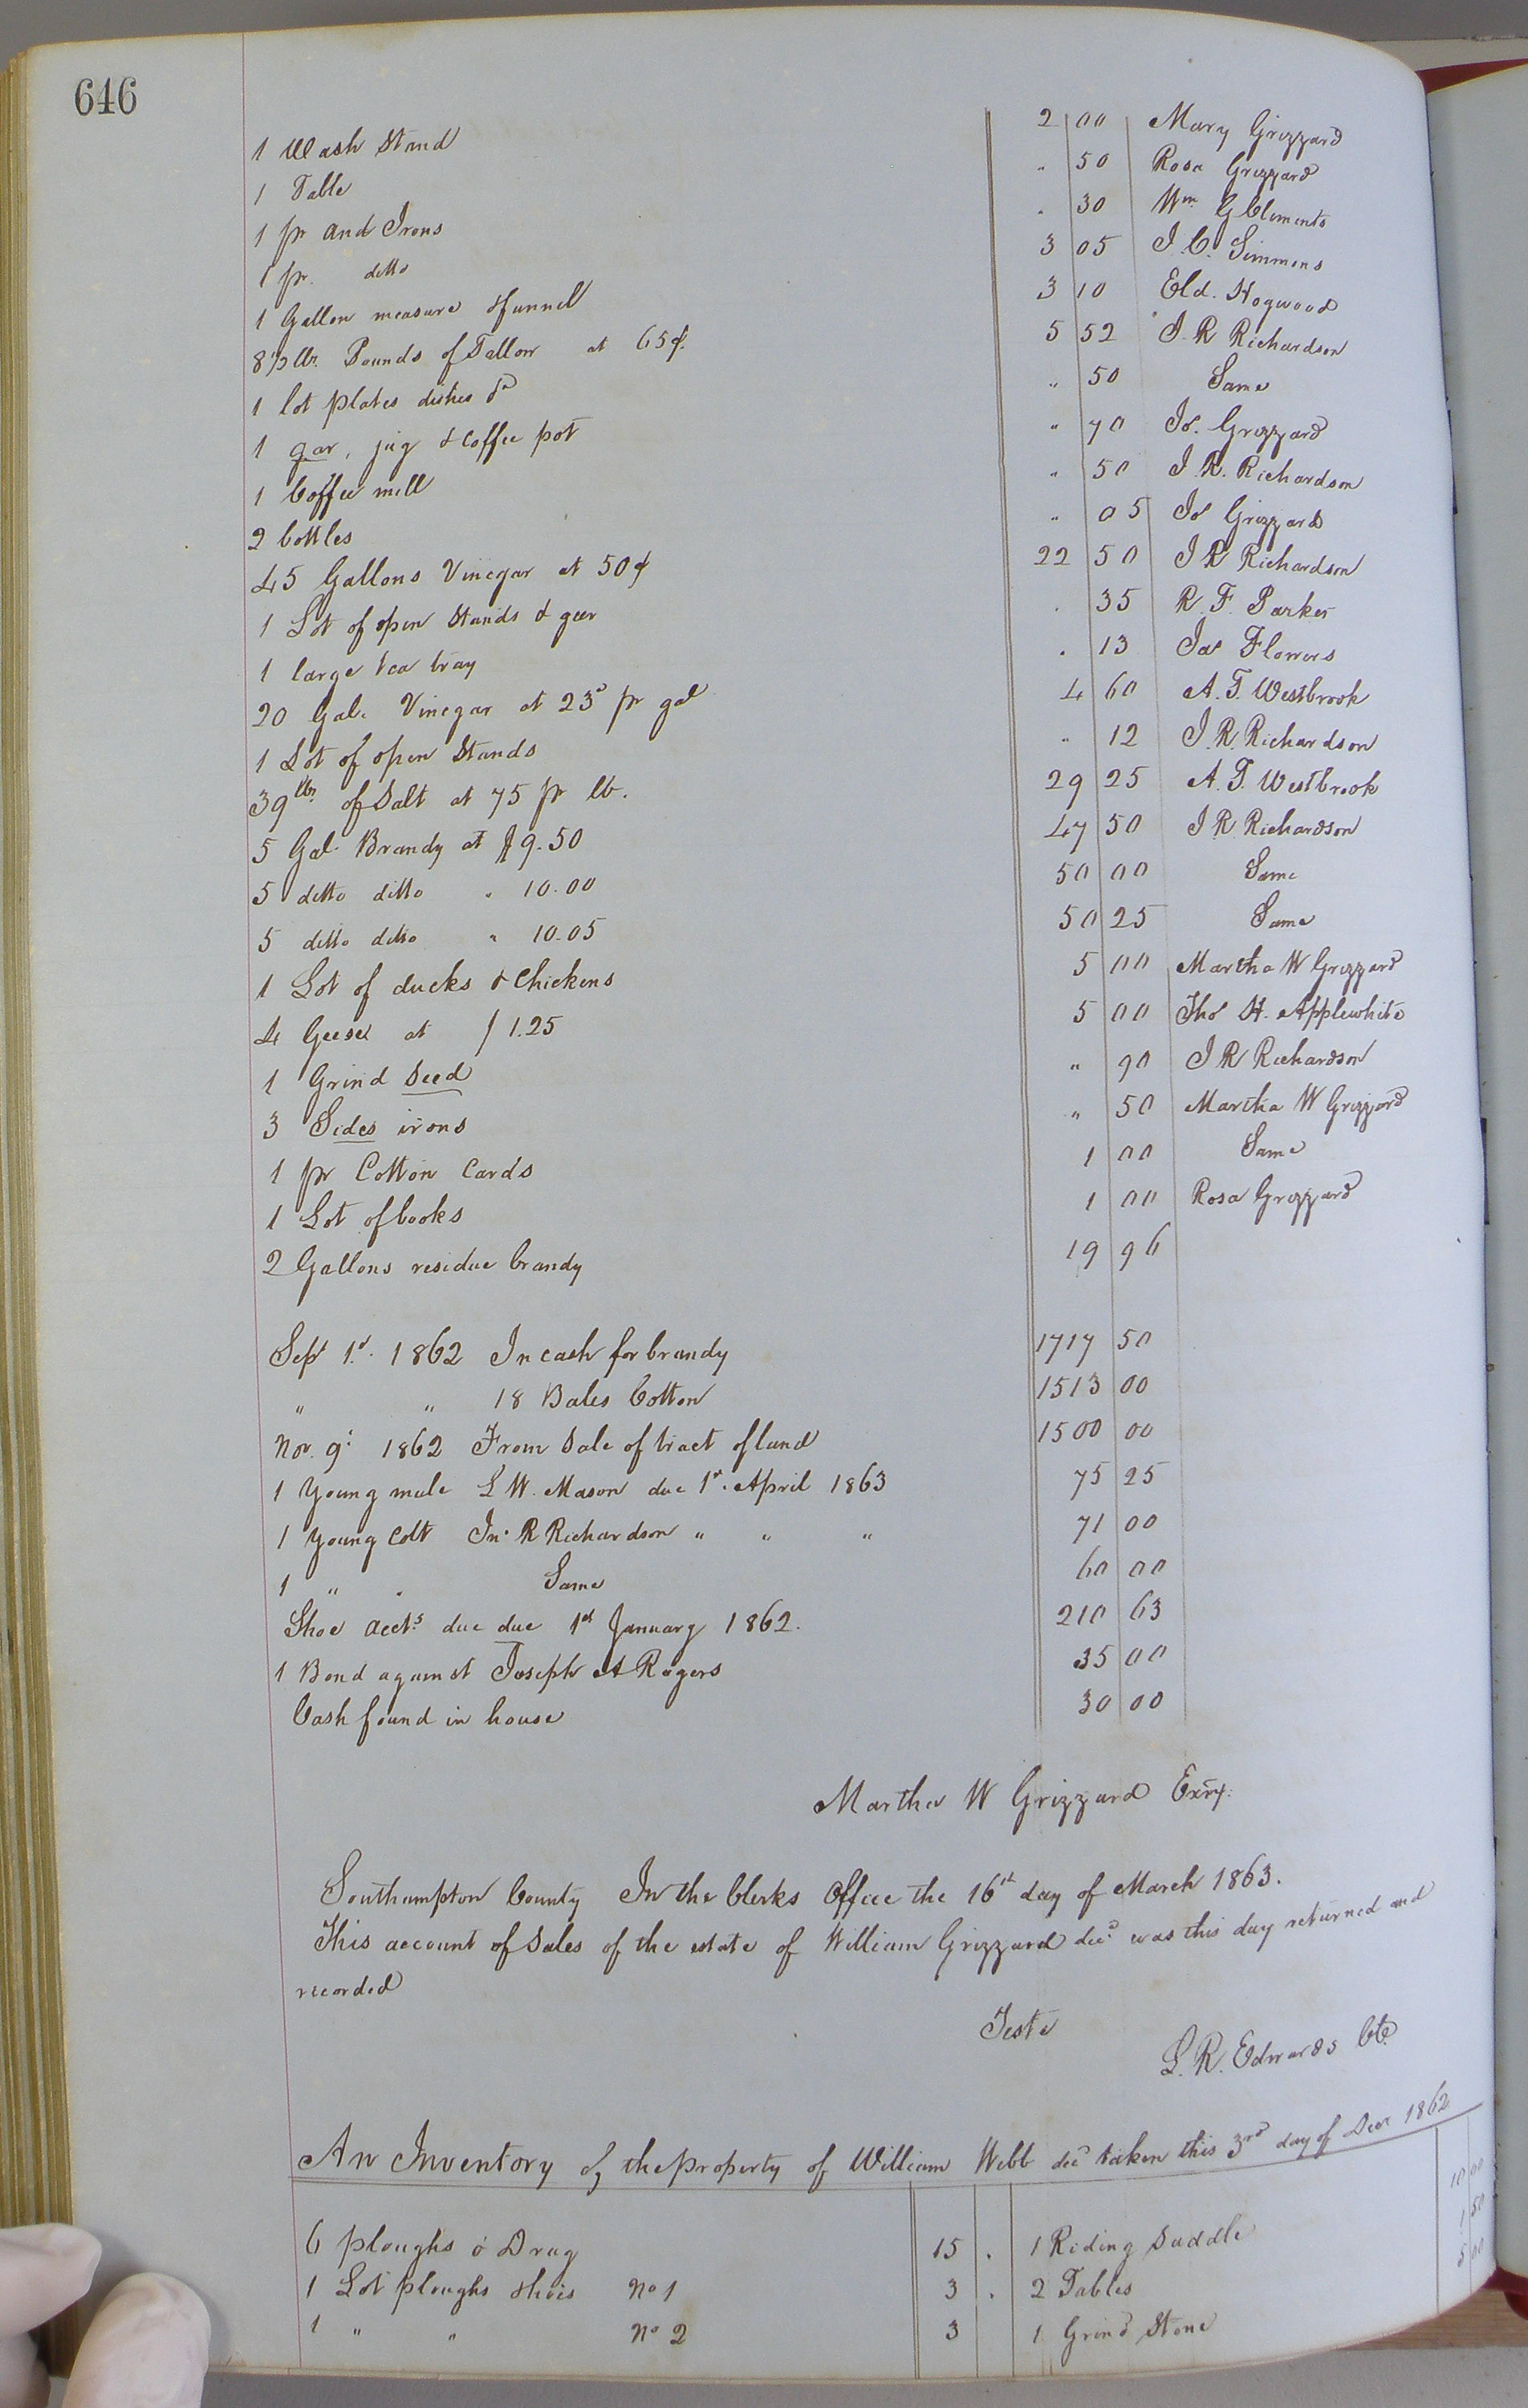 646
1 Wash Stand 2 00 Mary Grizzard
1 Table " 50 Rosa Grizzard
1 pr and Irons " 30 Wm G Clements
1 pr. ditto 3 05 J. C. Simmons
1 Gallon measure & funnel 3 10 Eld. Hogwood
8 1/2 lbs. Pounds of Tallow at 65¢. 5 52 J. R Richardson
1 lot plates dishes &c " 50 Same
1 gar, jug & Coffee pot " 70 Jos. Grizzard
1 Coffee mill " 50 J. R. Richardson
2 bottles " 05 Jos Grizzard
45 Gallons Vinegar at 50¢ 22 50 J R Richardson
1 Lot of open Stands & geer . 35 R. F. Parker
1 large tea tray . 13 Jas Flowers
20 Gal. Vinegar at 23c pr gal 4 60 A. T. Westbrook
1 Lot of open Stands " 12 J. R. Richardson
39 lbs. of Salt at 75 pr lb. 29 25 A. T. Westbrook
5 Gal. Brandy at $9.50 47 50 J R Richardson
5 ditto ditto " 10.00 50 00 Same
5 ditto ditto " 10.05 50 25 Same
1 Lot of ducks & Chickens 5 00 Martha W Grizzard
4 Geese at $1.25 5 00 Thos H. Applewhite
1 Grind Seed " 90 J R Richardson
3 Sides irons " 50 Martha W Grizzard
1 pr Cotton Cards 1 00 Same
1 Lot of books 1 00 Rosa Grizzard
2 Gallons residue brandy 19 96
Sept 1st. 1862 In cash for brandy 1717 50
" " 18 Bales Cotton 1513 00
Nov. 9th 1862 From Sale of tract of land 1500 00
1 Young mule L W. Mason due 1st. April 1863 75 25
1 Young Colt Jno R Richardson " " " 71 00
1 " " Same 60 00
Shoe accts due due 1st January 1862. 210 63
1 Bond against Joseph A Rogers 35 00
Cash found in house 30 00
Martha W Grizzard Exrx.
Southampton County In the Clerks Office the 16th day of March 1863.
This account of Sales of the estate of William Grizzard decd was this day returned and
recorded
Teste
L. R. Edwards Clk
An Inventory of the property of William Webb decd taken this 3rd day of Decr 1862
6 ploughs & Drag 15 . 1 Riding Saddle 10 00
1 Lot ploughs No 1 3 . 2 Tables 1 50
1 " " No 2 3 1 Grind Stone 5 00